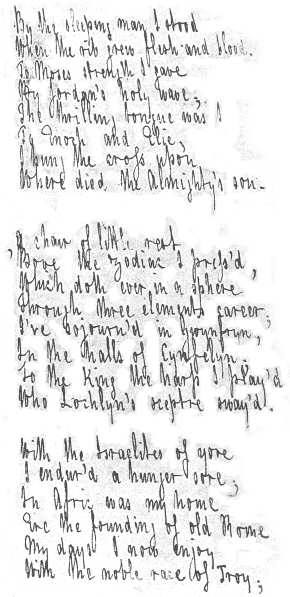 By the sleeping man I stood
When the rib grew flesh and blood.
To Moses strength I gave
By Jordan's holy wave;
The thrilling tongue was I
To Enoch and Elie;
I hung the cross upon,
Where died the Almighty's son.

A chair of little rest
'Bove the Zodiac I press'd,
Which doth ever in a sphere
Through three elements career;
I've sojourn'd in Gwynfryn,
In the halls of Cynfelyn;
To the King the harp I play'd
Who Lochlyn's sceptre sway'd.

With the Israelites of yore
I endur'd a hunger sore;
In Afric was my home
Ere the founding of old Rome
My days I now enjoy
With the noble race of Troy;